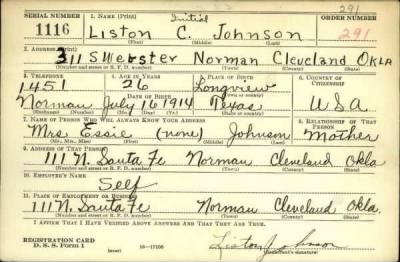 291
SERIAL NUMBER 1. NAME (Print) Initial ORDER NUMBER
1116 Liston C. Johnson 291
(First) (Middle) (Last)
2. ADDRESS (Print)
311 S Webster Norman Cleveland Okla
(Number and street or R. F. D. number) (Town) (County) (State)
3. TELEPHONE 4. AGE IN YEARS 5. PLACE OF BIRTH 6. COUNTRY OF CITIZENSHIP
1451 26 Longview
DATE OF BIRTH
Norman July 16 1914 Texas USA
(Exchange) (Number) (Mo.) (Day) (Yr.) (State or country)
7. NAME OF PERSON WHO WILL ALWAYS KNOW YOUR ADDRESS 8. RELATIONSHIP OF THAT PERSON
Mrs Essie (none) Johnson Mother
(Mr., Mrs., Miss) (First) (Middle) (Last)
9. ADDRESS OF THAT PERSON
111 N. Santa Fe Norman Cleveland Okla
(Number and street or R. F. D. number) (Town) (County) (State)
10. EMPLOYER'S NAME
Self
11. PLACE OF EMPLOYMENT OR BUSINESS
111 N. Santa Fe Norman Cleveland Okla.
(Number and street or R. F. D. number) (Town) (County) (State)
I AFFIRM THAT I HAVE VERIFIED ABOVE ANSWERS AND THAT THEY ARE TRUE.
REGISTRATION CARD
D. S. S. Form 1 (over) Liston Johnson
(Registrant's signature)